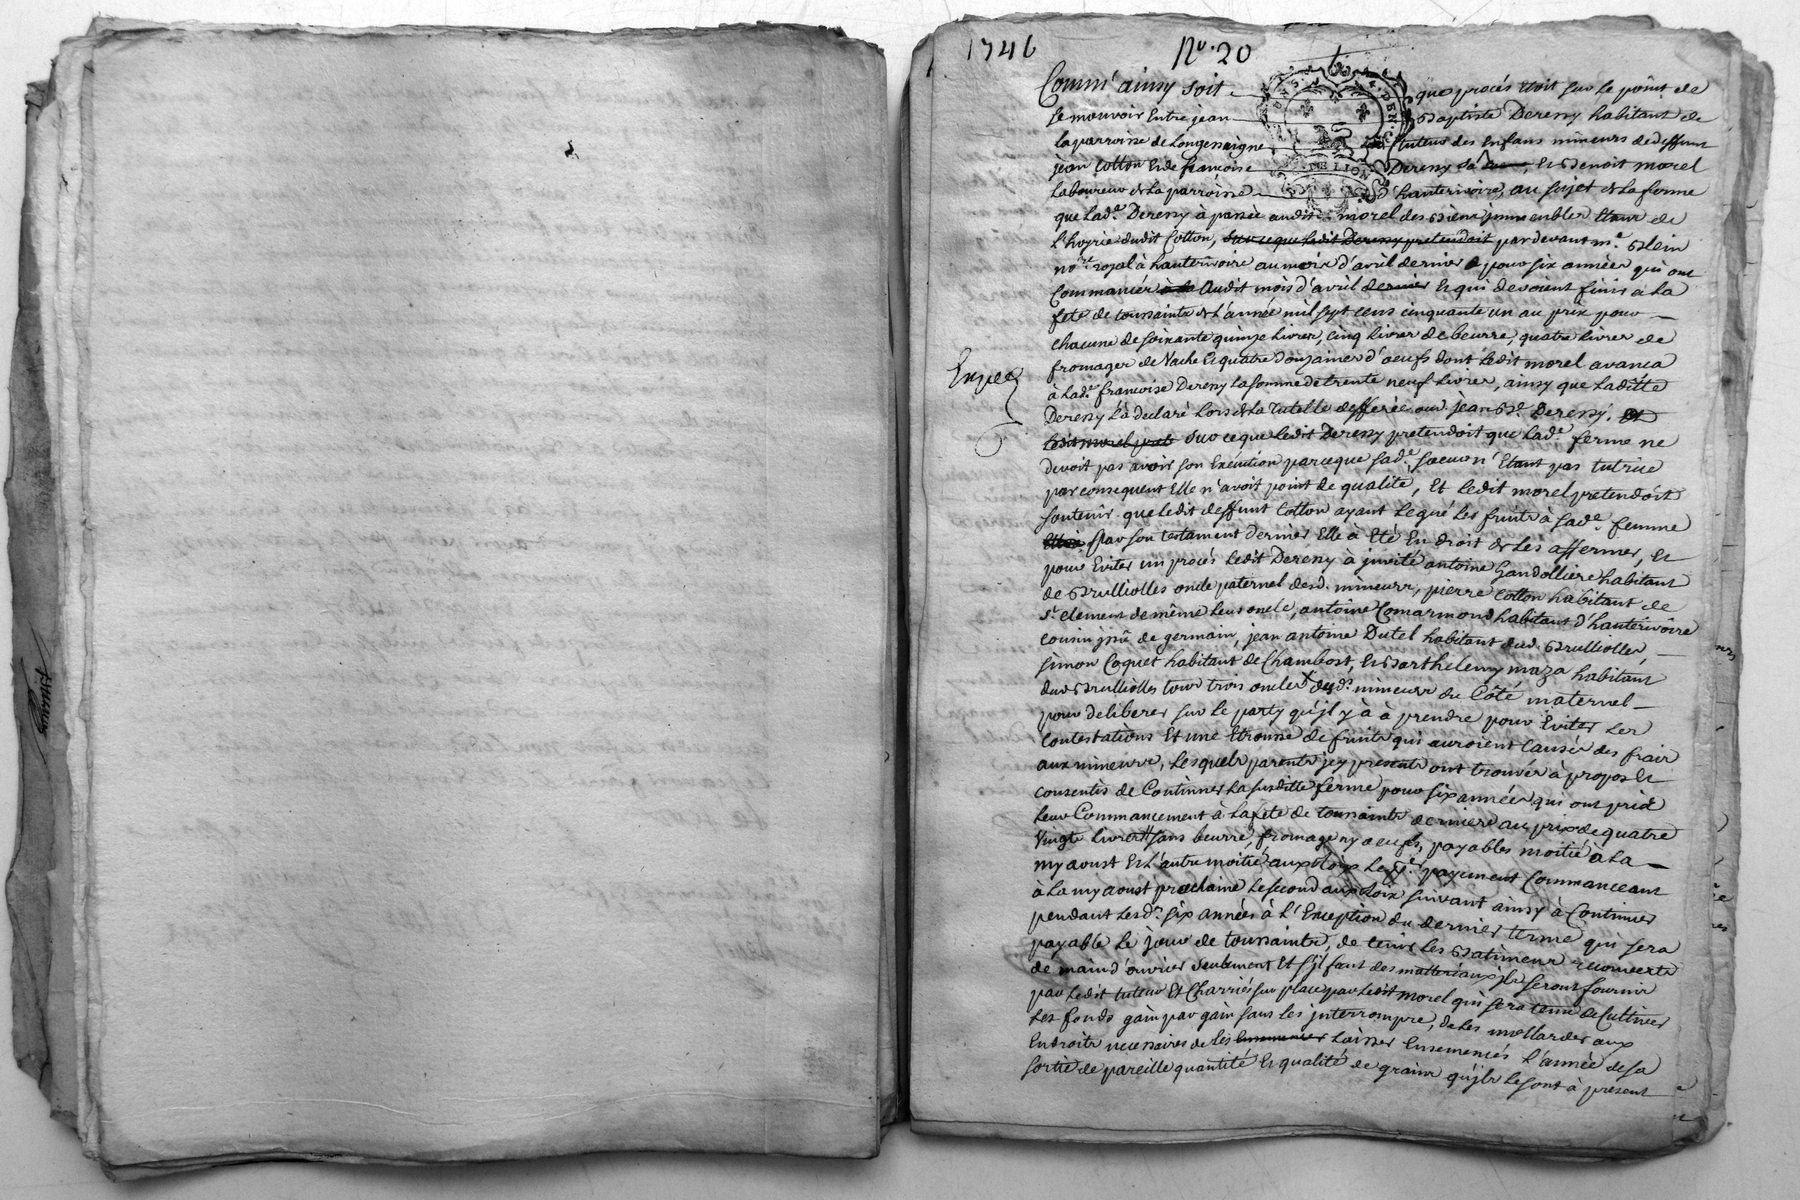 1746 No. 20
Comm' ainsy soit que procès etoit sur le point de
se mouvoir Entre jean Baptiste Dereny habitant de
la parroisse de Longessaigne tuteur des Enfans mineurs de deffunt
jean Cotton Et de françoise Dereny sa Et Benoit morel
Laboureur de la parroisse d'hauterivoire, au sujet de la ferme
que lad.e Dereny à passée audit morel des Biens jmmeubles de
l'hoyrie dudit Cotton, sur ce que ledit Dereny pretendoit pardevant m.e Blein
no.re royal à hauterivoire au mois d'avril dernier pour six années qui ont
Commancées audit mois d'avril dernier Et qui devoient finir à la
fete de toussaints de l'année mil sept cens cinquante un au prix pour
chacune de soixante quinze livres, cinq livres de beurre, quatre livres de
fromages de Vache Et quatre douzaines d'oeufs dont ledit morel avança
à lad.e francoise Dereny la somme de trente neuf livres, ainsy que laditte
Dereny l'à declaré lors de la tutelle defferée aud. jean B.te Dereny. Et
ledit morel sur ce que ledit Dereny pretendoit que lad.e ferme ne
devoit pas avoir son Exécution parceque sad.e soeur n'Etant pas tutrice
par consequent Elle n'avoit point de qualité, Et ledit morel pretendoit
soutenir que ledit deffunt Cotton ayant legué les fruits à sad.e femme
par son testament dernier Elle à Eté En droit de les affermer, Et
pour Eviter un procés ledit Dereny à jnvité antoine Gandolliere habitant
de Brulliolles oncle paternel desd. mineurs, pierre Cotton habitant de
S.t Clement de même leur oncle, antoine Comarmond habitant d'hauterivoire
cousin jssû de germain, jean antoine Dutel habitant dud. Brulliolles,
simon Coquet habitant de Chambost, Et Barthelemy maza habitant
dud Brulliolles tous trois oncles desd.s mineurs du Côté maternel
pour deliberer sur le party qu'jl y à à prendre pour Eviter les
Contestations Et une Etrousse de fruits qui auroient causés des frais
aux mineurs, lesquels parents jcy presents ont trouvés à propos Et
consentis de Continuer la susditte ferme pour six années qui ont pris
leur Commancement à la fete de toussaints derniere au prix de quatre
Vingts livres sans beurre, fromage ny oeufs, payables moitié à la
my aoust Et l'autre moitié aux Rois le p.er payement Commanceant
à la my aoust prochaine le second aux Rois suivant ainsy à Continuer
pendant lesd. six années à l'Exception du dernier terme qui sera
payable le jour de toussaints, de tenir les Batimens recouverts
de main d'ouvrier seulement Et s'jl faut des matteriaux jls seront fournis
par ledit tuteur Et Charriés sur place par ledit morel qui sera tenu de Cultiver
les fonds gain par gain sans les jnterrompre, de les mollarder aux
Endroits necessaires de les laisser Ensemencés l'année de sa
sortie de pareille quantité Et qualité de grains qu'jls le sont à present